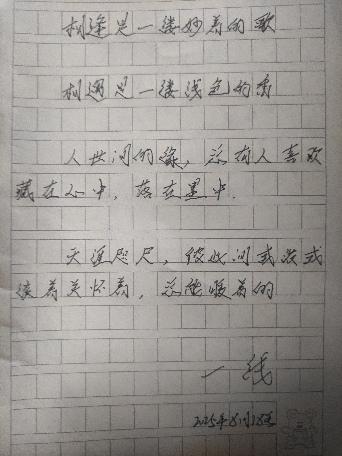 相逢是一缕妙着的歌
相遇是一缕浅色的香
人世间的缘，总有人喜欢
藏在心中，落在墨中.
天涯咫尺，彼此间或浓或
淡着关怀着，总能暖着的
一线
2025年8月18日